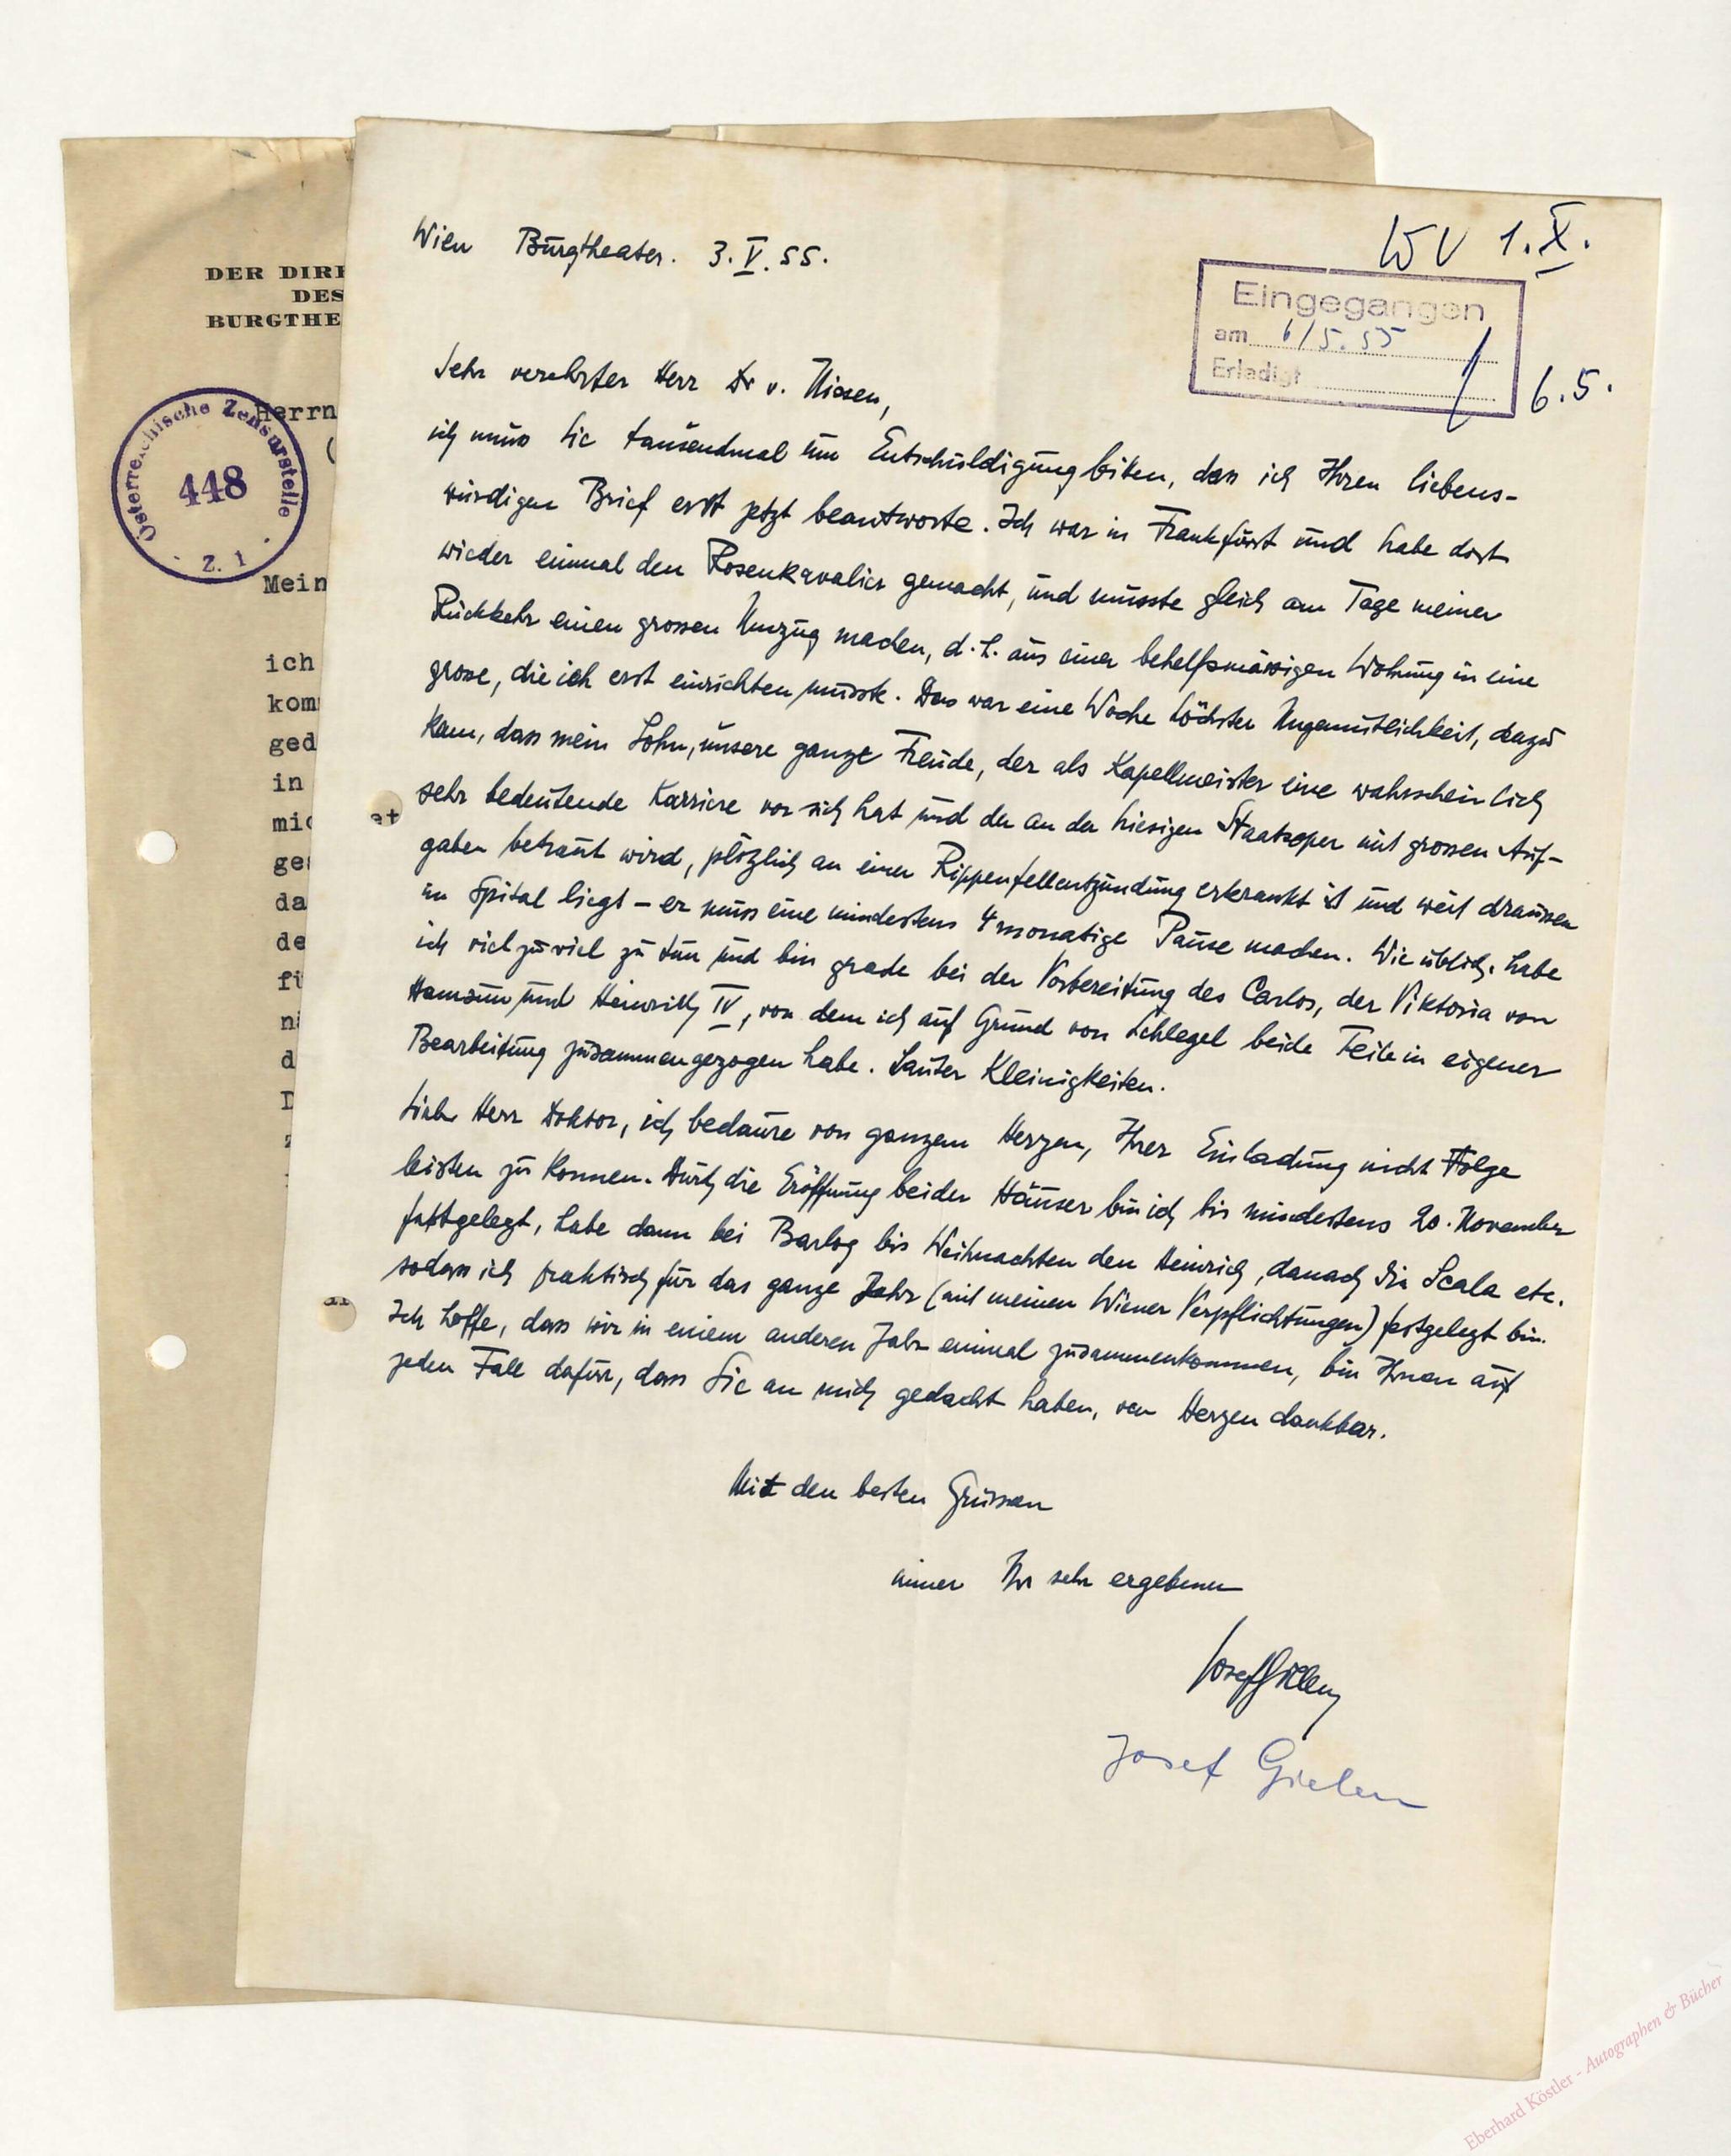 DER DIRE
DES
BURGTHE
Österreichische Zensurstelle
448
Z. 1
Herrn
(
Mein
ich
kom
ged
in
mic
ges
da
de
fü
d
D
et
Wien Burgtheater. 3.V.55.
WV 1.X.
Eingegangen
am 6/5.55
Erledigt
6.5.
Sehr verehrter Herr Dr v. Niessen,
ich muss Sie tausendmal um Entschuldigung bitten, dass ich Ihren liebens-
würdigen Brief erst jetzt beantworte. Ich war in Frankfurt und habe dort
wieder einmal den Rosenkavalier gemacht, und musste gleich am Tage meiner
Rückkehr einen grossen Umzug machen, d.h. aus einer behelfsmässigen Wohnung in eine
grosse, die ich erst einrichten musste. Das war eine Woche höchster Ungemütlichkeit, dazu
kam, dass mein Sohn, unsere ganze Freude, der als Kapellmeister eine wahrscheinlich
sehr bedeutende Karriere vor sich hat und der an der hiesigen Staatsoper mit grossen Auf-
gaben betraut wird, plötzlich an einer Rippenfellentzündung erkrankt ist und weit draussen
im Spital liegt – er muss eine mindestens 4 monatige Pause machen. Wie üblich, habe
ich viel zu viel zu tun und bin grade bei der Vorbereitung des Carlos, der Viktoria von
Hamsun und Heinrich IV, von dem ich auf Grund von Schlegel beide Teile in eigener
Bearbeitung zusammengezogen habe. Lauter Kleinigkeiten.
Lieber Herr Doktor, ich bedaure von ganzem Herzen, Ihrer Einladung nicht Folge
leisten zu können. Durch die Eröffnung beider Häuser bin ich bis mindestens 20. November
festgelegt, habe dann bei Barlog bis Weihnachten den Heinrich, danach die Scala etc.
sodass ich praktisch für das ganze Jahr (mit meinen Wiener Verpflichtungen) festgelegt bin.
Ich hoffe, dass wir in einem anderen Jahr einmal zusammenkommen, bin Ihnen auf
jeden Fall dafür, dass Sie an mich gedacht haben, von Herzen dankbar.
Mit den besten Grüssen
immer Ihr sehr ergebener
Josef Gielen
Josef Gielen
Eberhard Köstler - Autographen & Bücher